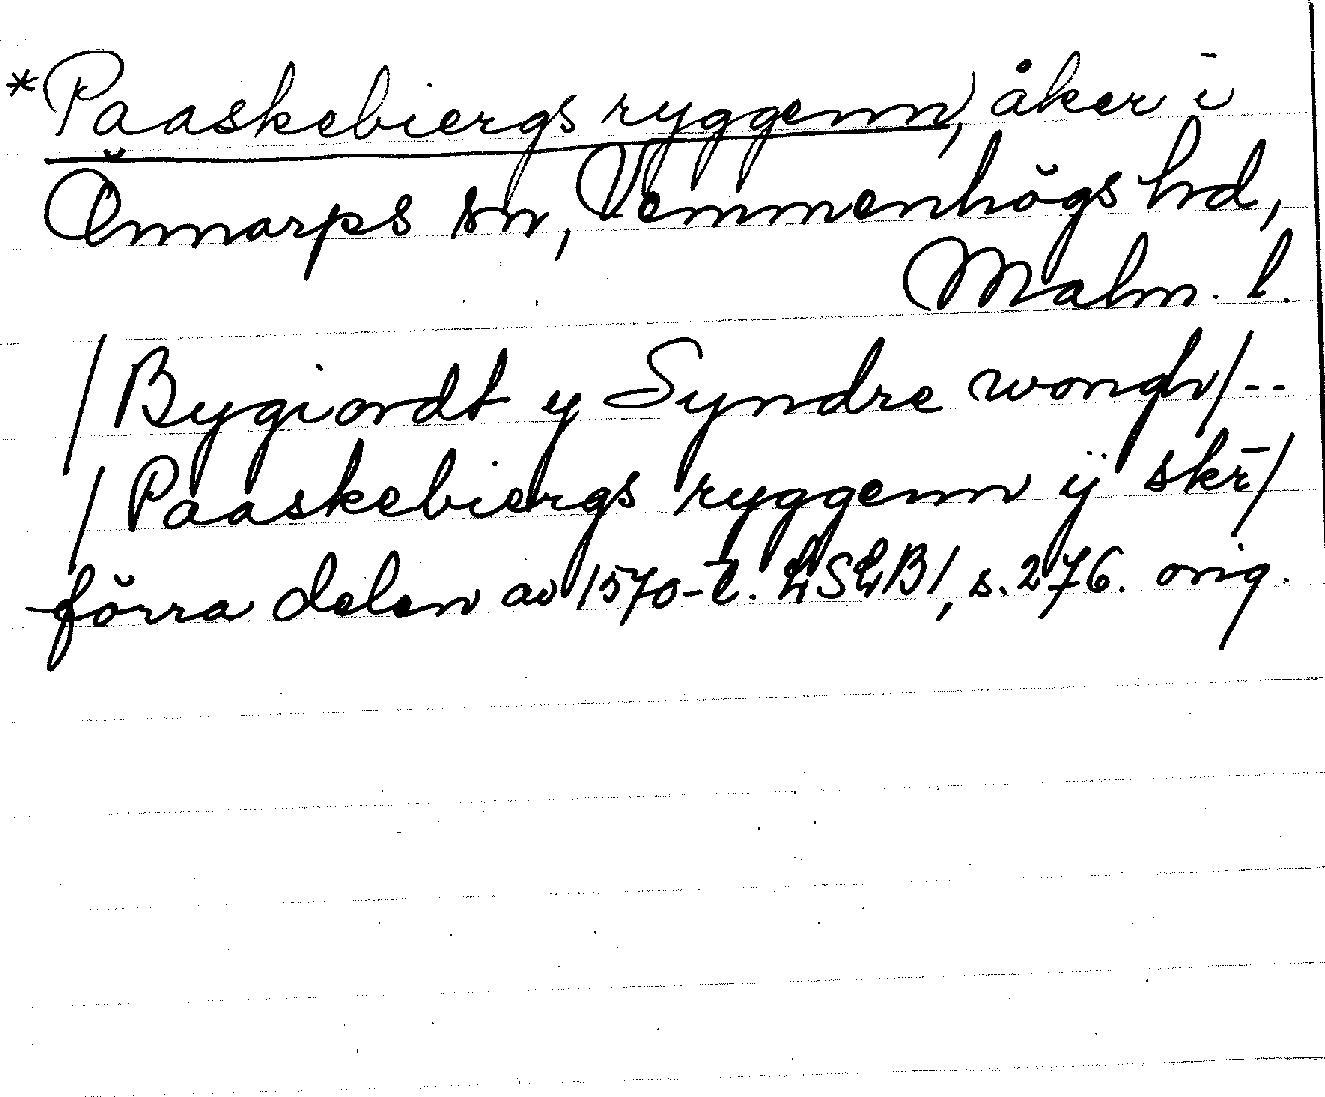 *Paaskebiergs ryggenn, åker i
Önnarps sn, Vemmenhögs hd,
Malm. l.
/Bygiordt y Syndre wongh/--
/Paaskebiergs ryggenn ÿ skr̄/
förra delen av 1570-t. LSLB1, s. 276. orig.